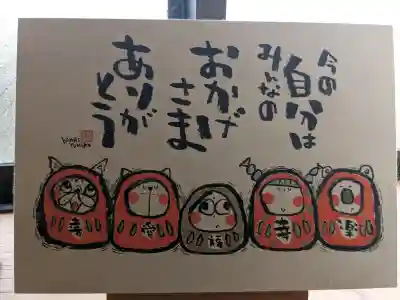 今の
自分は
みんなの
おかげ
さま
ありが
とう
喜
愛
福
幸
楽